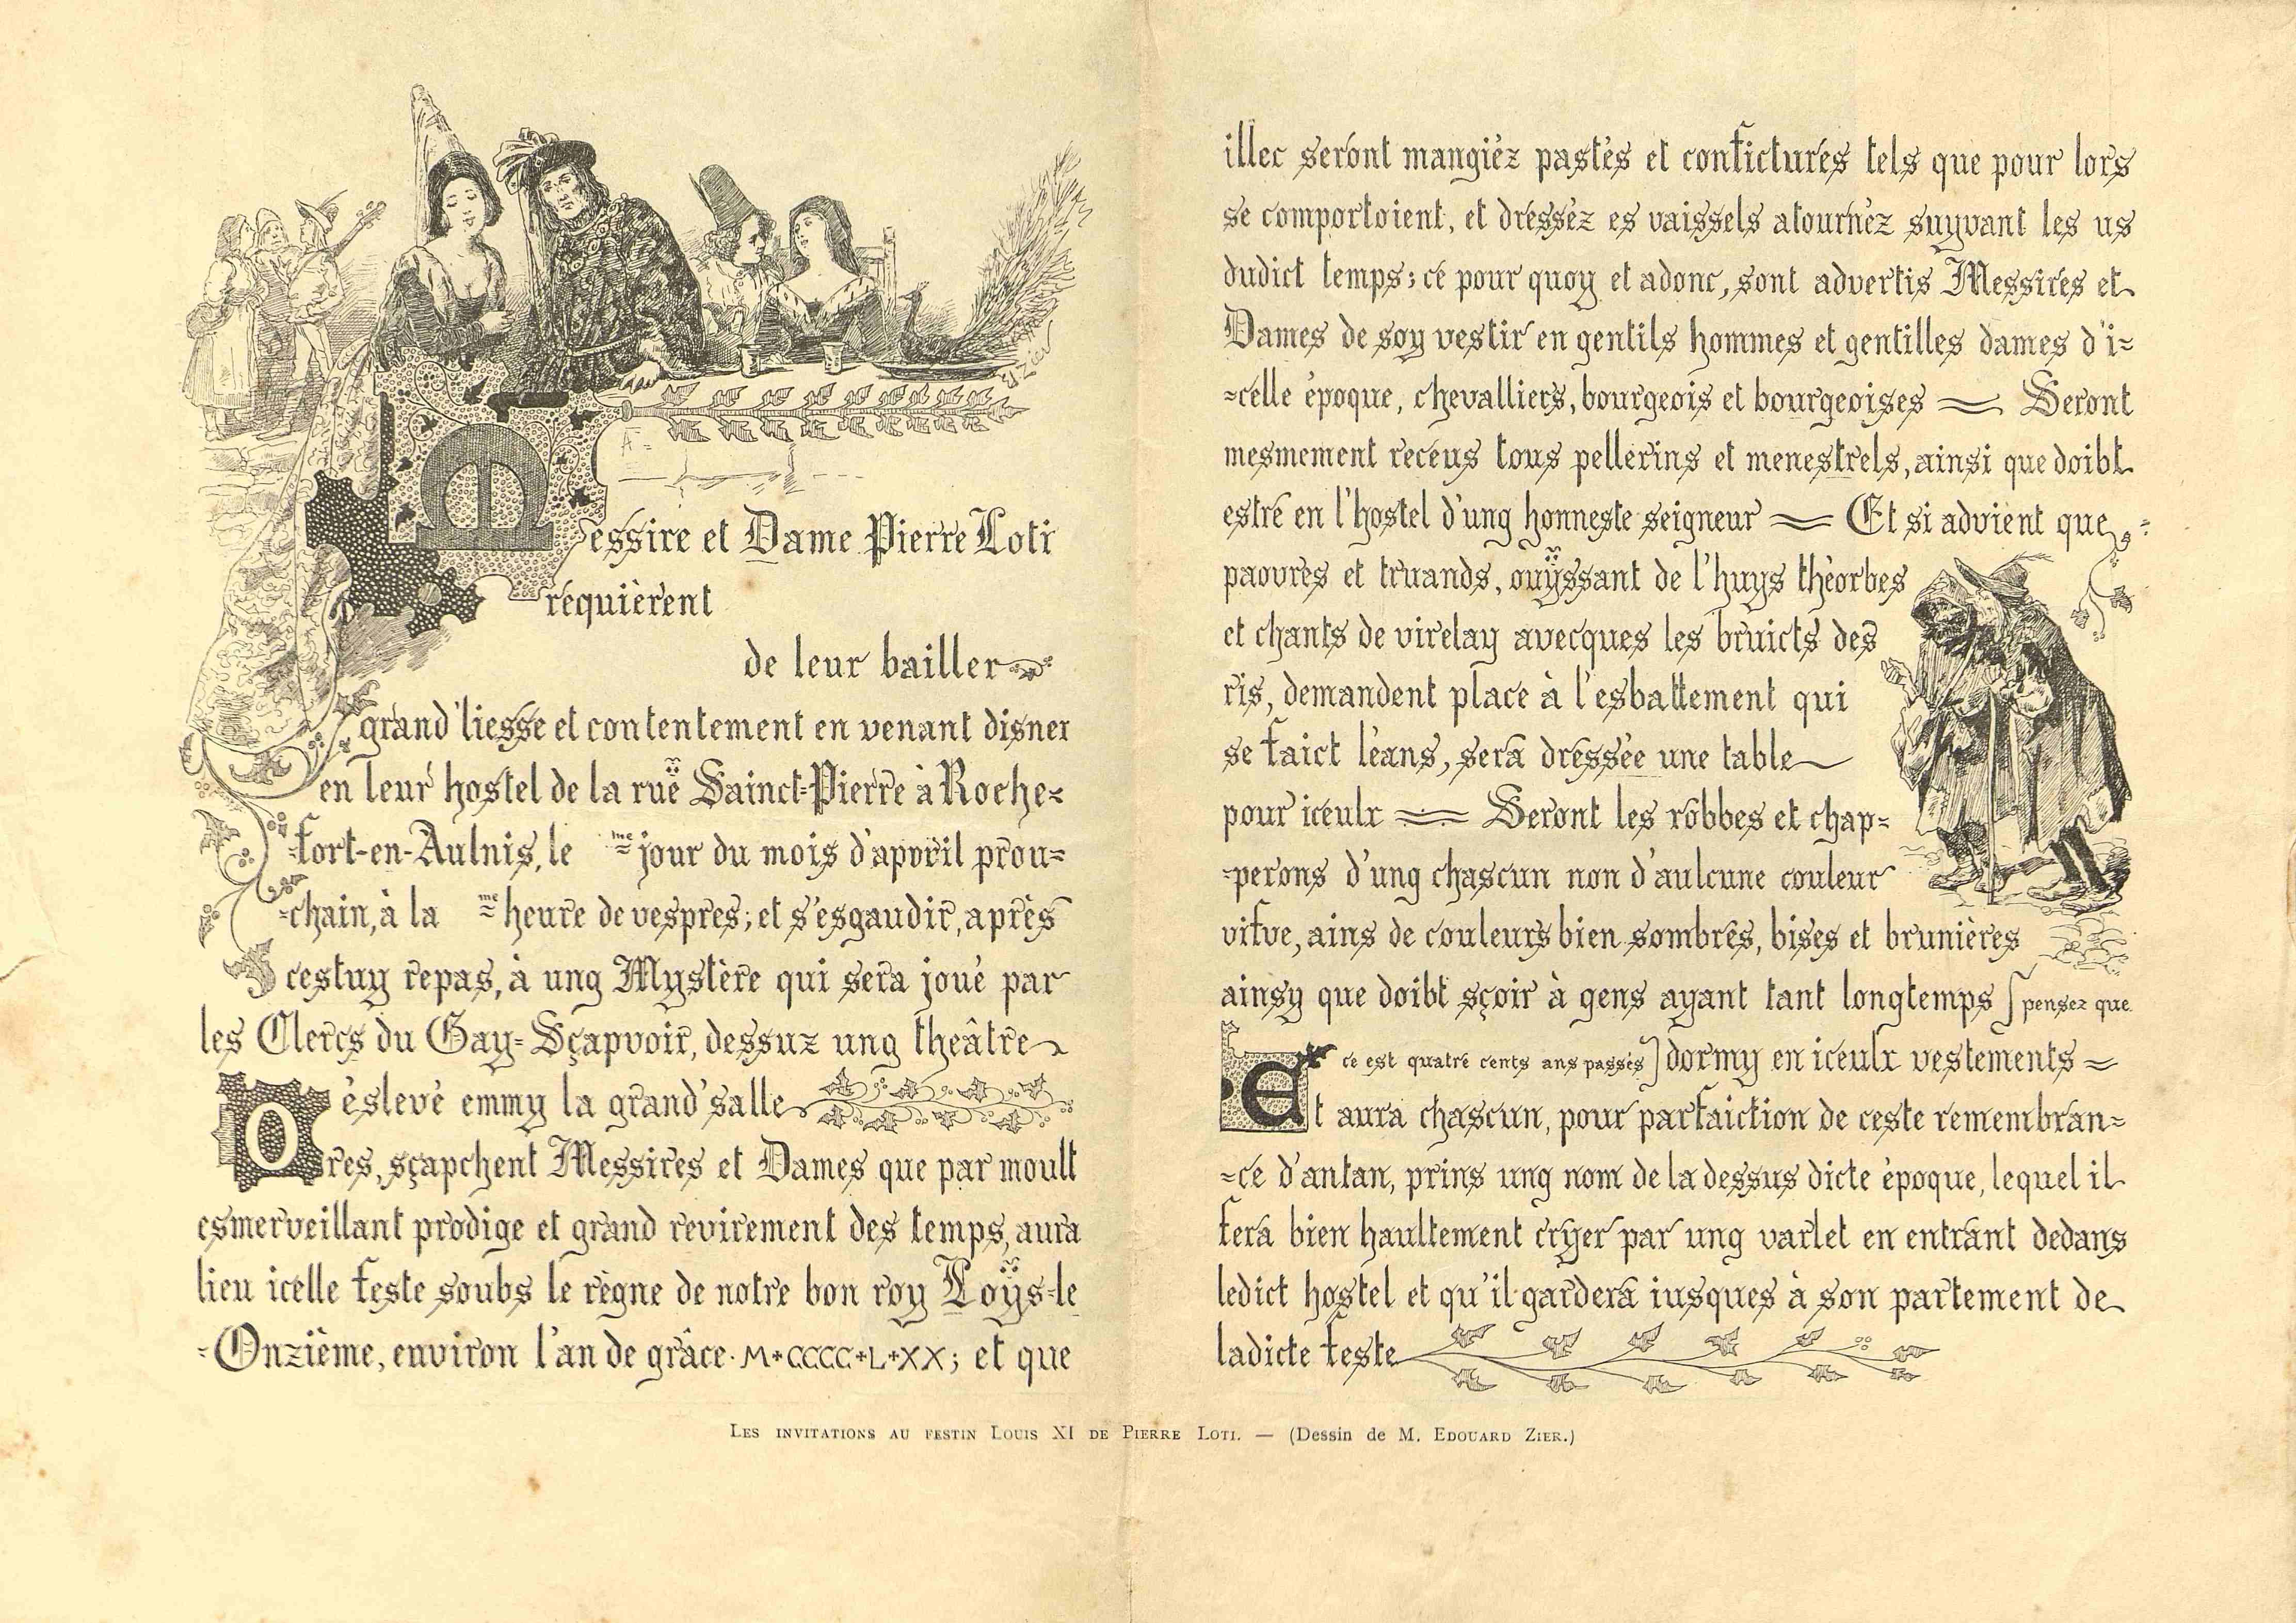 Messire et Dame Pierre Loti
réquièrent
de leur bailler
grand'liesse et contentement en venant disner
en leur hostel de la ruë Sainct-Pierre à Roche-
-fort-en-Aulnis, le me jour du mois d'apvril prou-
-chain, à la me heure de vespres; et s'esgaudir, après
cestuy repas, à ung Mystère qui sera joué par
les Clercs du Gay-Sçapvoir, dessuz ung théâtre
éslevé emmy la grand'salle
Ores, sçapchent Messires et Dames que par moult
esmerveillant prodige et grand revirement des temps, aura
lieu icelle feste soubs le règne de notre bon roy Loÿs-le
-Onzième, environ l'an de grâce · M+CCCC+L+XX; et que
illec seront mangiéz pastés et confictures tels que pour lors
se comportoient, et dresséz es vaissels atournéz suyvant les us
dudict temps; cé pour quoy et adonc, sont advertis Messires et
Dames de soy vestir en gentils hommes et gentilles dames d'i-
-celle époque, chevalliers, bourgeois et bourgeoises = Seront
mesmement recéus tous pellerins et menestrels, ainsi que doibt
estre en l'hostel d'ung honneste seigneur = Et si advient que
paovrès et truands, ouÿssant de l'huys théorbes
et chants de virelay avecques les bruicts des
ris, demandent place à l'esbattement qui
se faict léans, sera dressée une table
pour iceulx = Seront les robbes et chap-
-perons d'ung chascun non d'aulcune couleur
vifve, ains de couleurs bien sombres, bises et brunières
ainsy que doibt sçoir à gens ayant tant longtemps [pensez que
ce est quatre cents ans passés] dormy en iceulx vestements =
Et aura chascun, pour parfaiction de ceste remembran-
-ce d'antan, prins ung nom de la dessus dicte époque, lequel il
fera bien haultement cryer par ung varlet en entrant dedans
ledict hostel et qu'il gardera iusques à son partement de
ladicte feste
Les invitations au festin Louis XI de Pierre Loti. — (Dessin de M. Edouard Zier.)